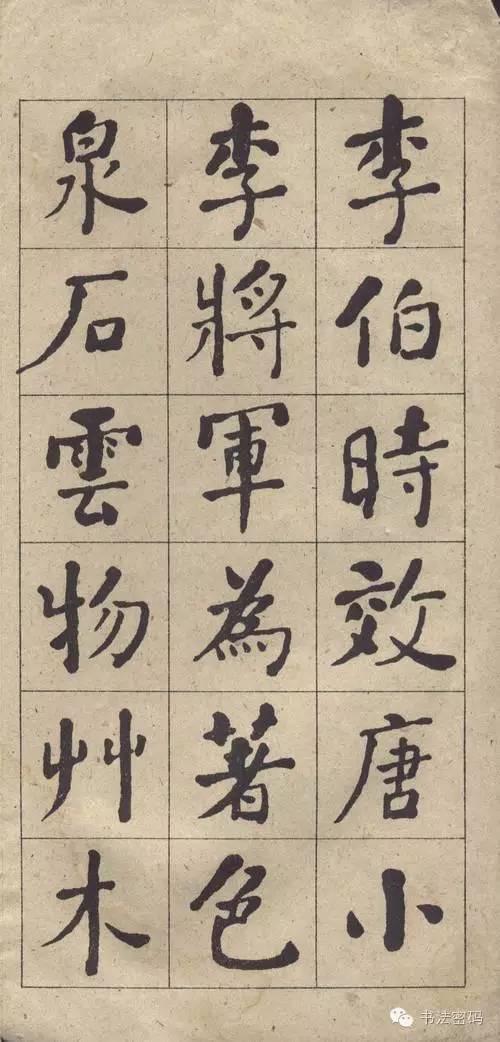 李伯時效唐小
李將軍為著色
泉石雲物艸木
书法密码